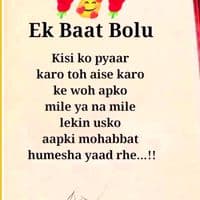 Ek Baat Bolu
Kisi ko pyaar
karo toh aise karo
ke woh apko
mile ya na mile
lekin usko
aapki mohabbat
humesha yaad rhe...!!